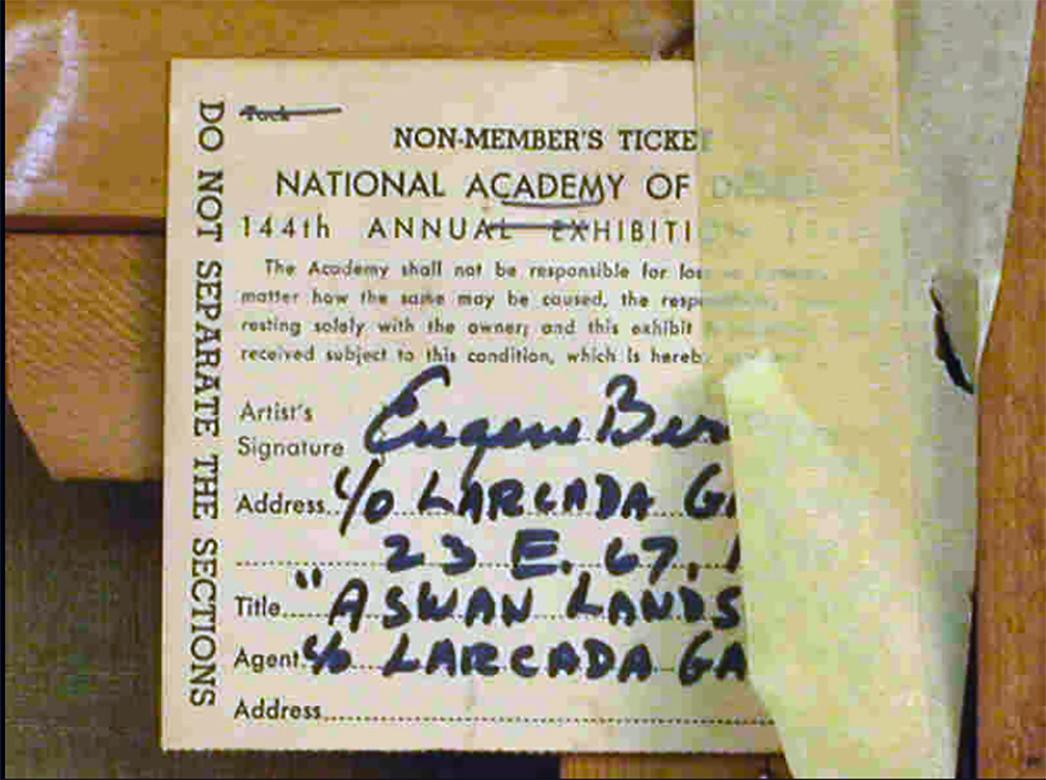 DO NOT SEPARATE THE SECTIONS
Tack
NON-MEMBER'S TICKE
NATIONAL ACADEMY OF
144th ANNUAL EXHIBITI
The Academy shall not be responsible for los
matter how the same may be caused, the resp
resting solely with the owner; and this exhibit
received subject to this condition, which is hereb
Artist's
Signature Eugene Ber
Address. c/o LARCADA GA
23 E. 67.
Title "ASWAN LANDS
Agent. c/o LARCADA GA
Address